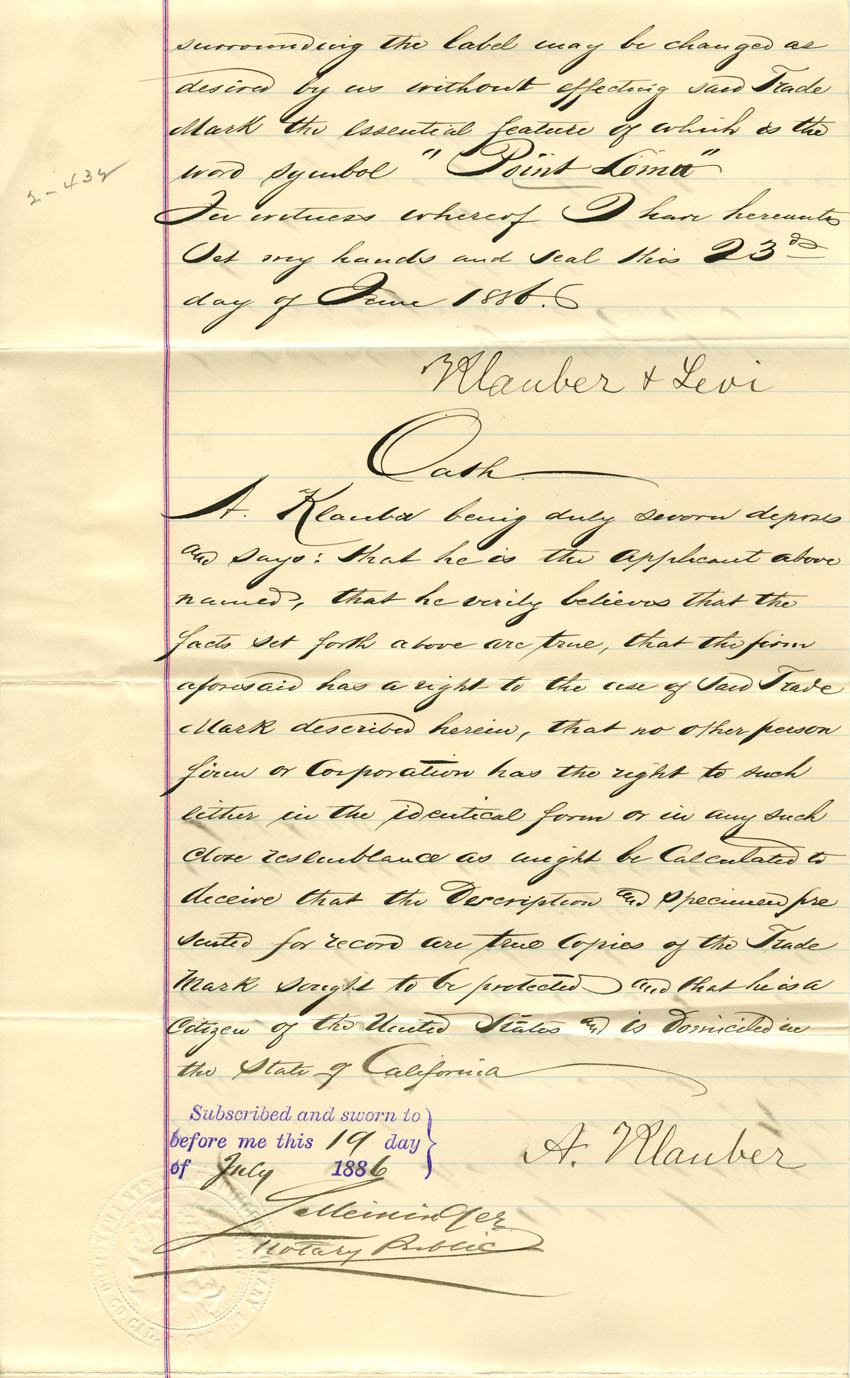 surrounding the label may be changed as
desired by us without effecting said Trade
Mark the essential feature of which is the
word symbol "Point Loma"
2-432
In witness whereof I have hereunto
Set my hands and seal this 23rd
day of June 1886.
Klauber & Levi
Oath
A. Klauber being duly sworn deposes
and says: that he is the applicant above
named, that he verily believes that the
facts set forth above are true, that the firm
aforesaid has a right to the use of said Trade
Mark described herein, that no other person
firm or Corporation has the right to such
either in the identical form or in any such
close resemblance as might be Calculated to
deceive that the Description and specimen pre
sented for record are true Copies of the Trade
Mark sought to be protected and that he is a
Citizen of the United States and is Domiciled in
the State of California
Subscribed and sworn to
before me this 19 day
of July 1886
A. Klauber
Meininger
Notary Public